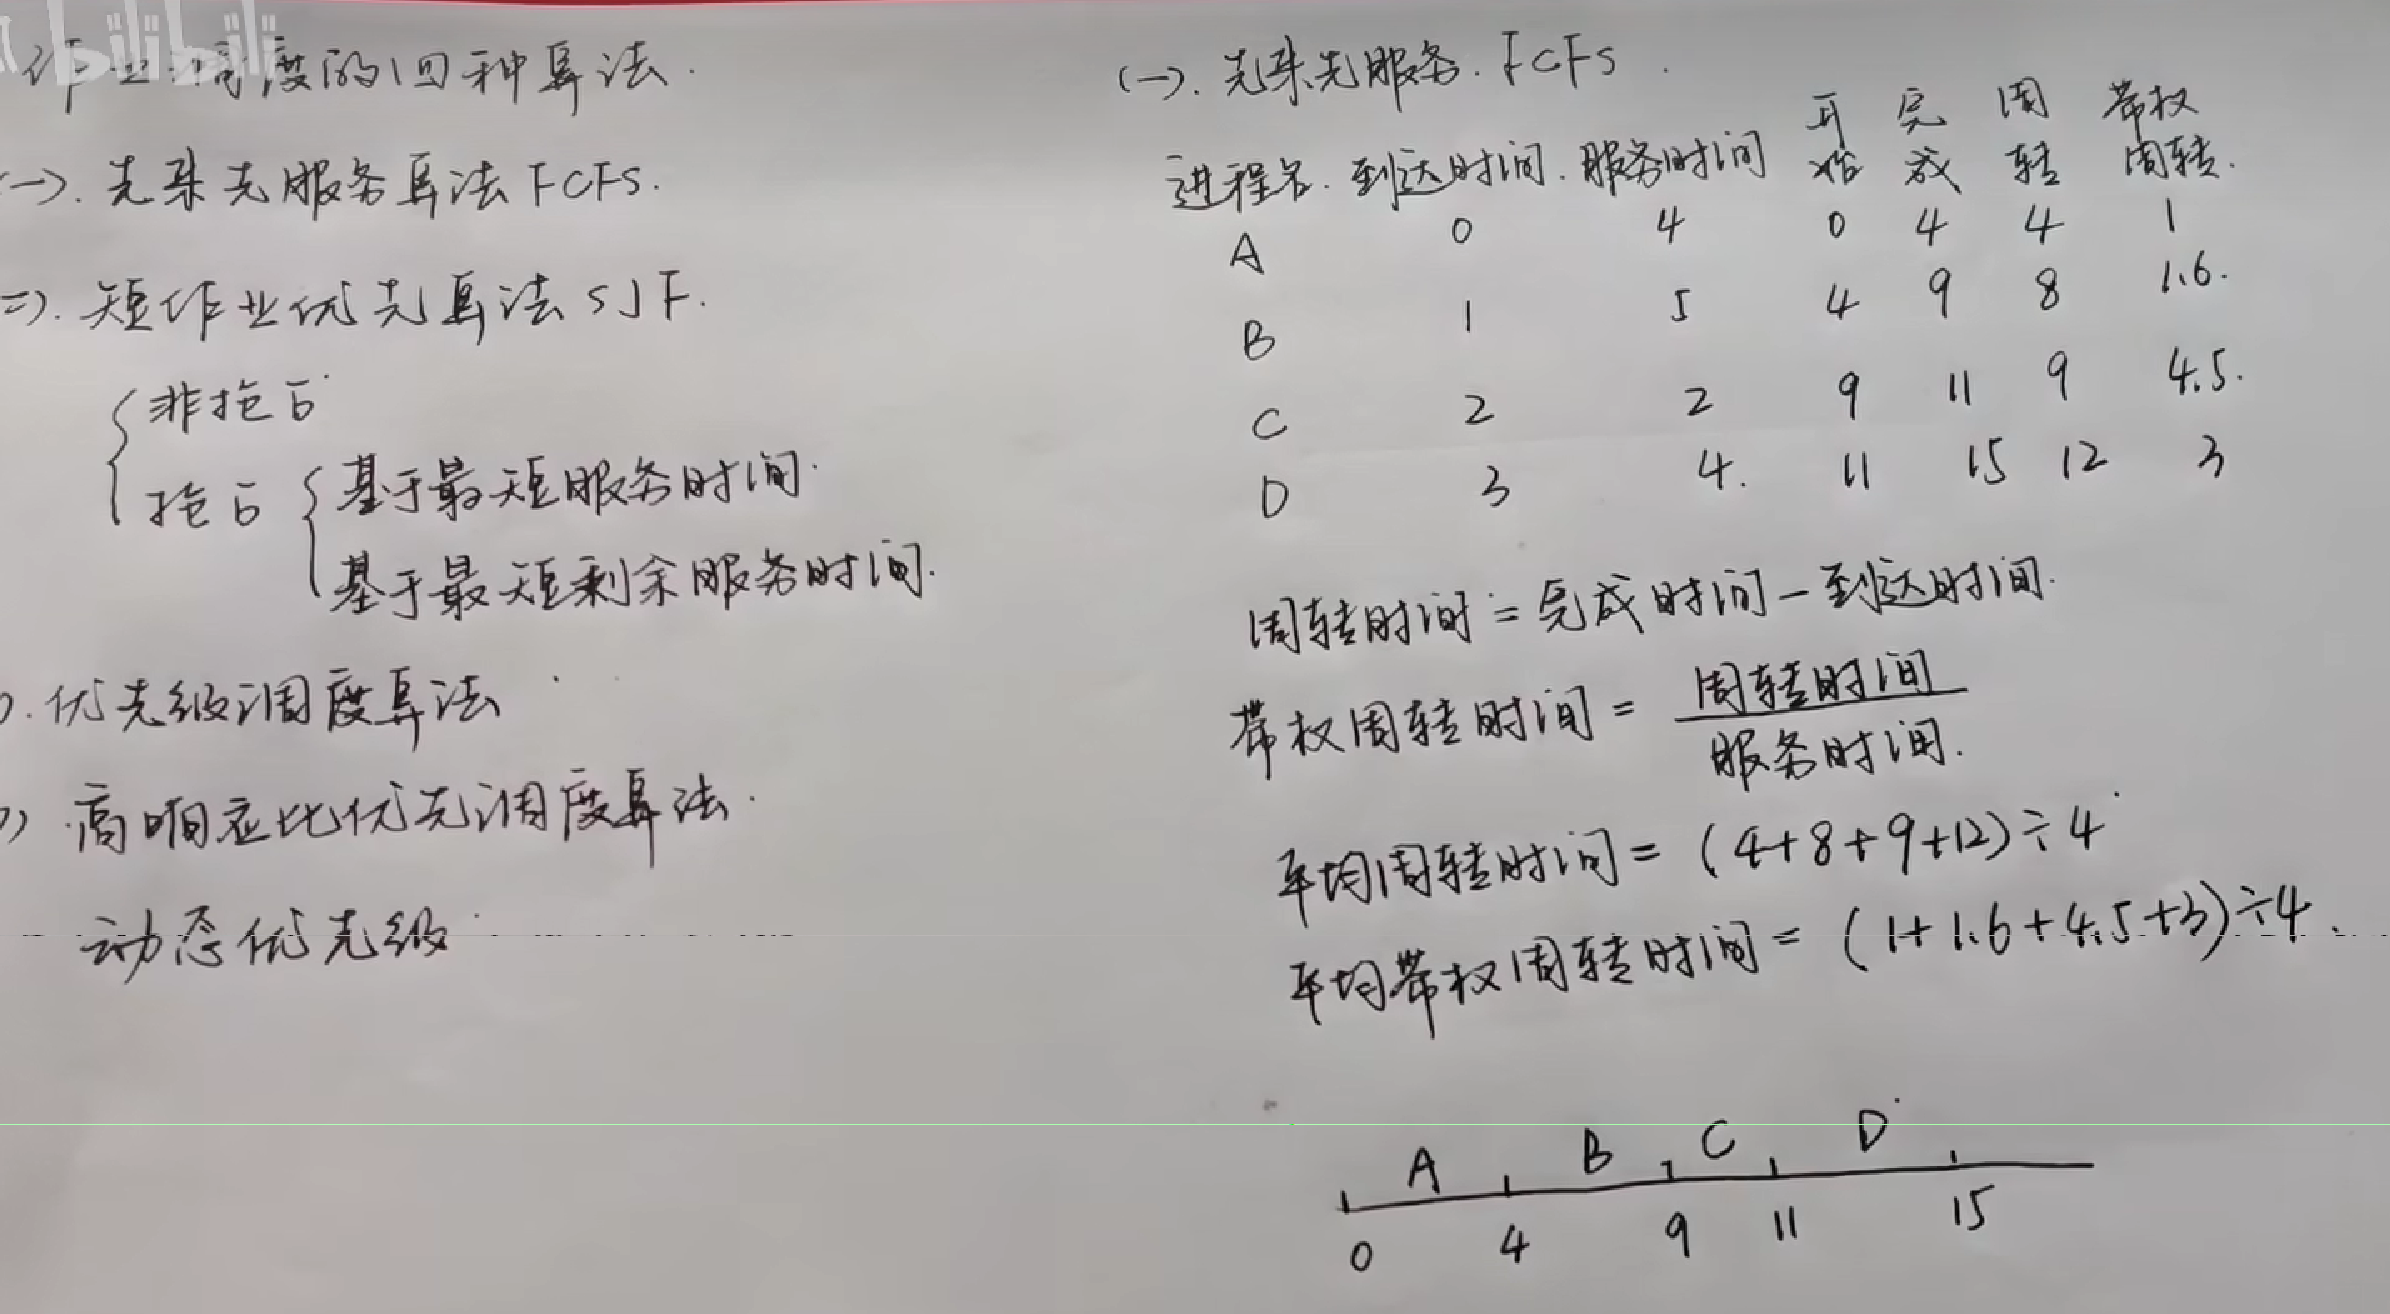 bilibili
作业调度的四种算法.
(一). 先来先服务算法 FCFS.
二). 短作业优先算法 SJF.
非抢占
抢占
基于最短服务时间.
基于最短剩余服务时间.
). 优先级调度算法
) 高响应比优先调度算法.
动态优先级
(一). 先来先服务. FCFS.
进程名. 到达时间. 服务时间 开始 完成 周转 带权周转.
A 0 4 0 4 4 1
B 1 5 4 9 8 1.6.
C 2 2 9 11 9 4.5.
D 3 4. 11 15 12 3
周转时间 = 完成时间 - 到达时间.
带权周转时间 = 周转时间
服务时间.
平均周转时间 = (4+8+9+12)÷4
平均带权周转时间 = (1+1.6+4.5+3)÷4.
A B C D
0 4 9 11 15